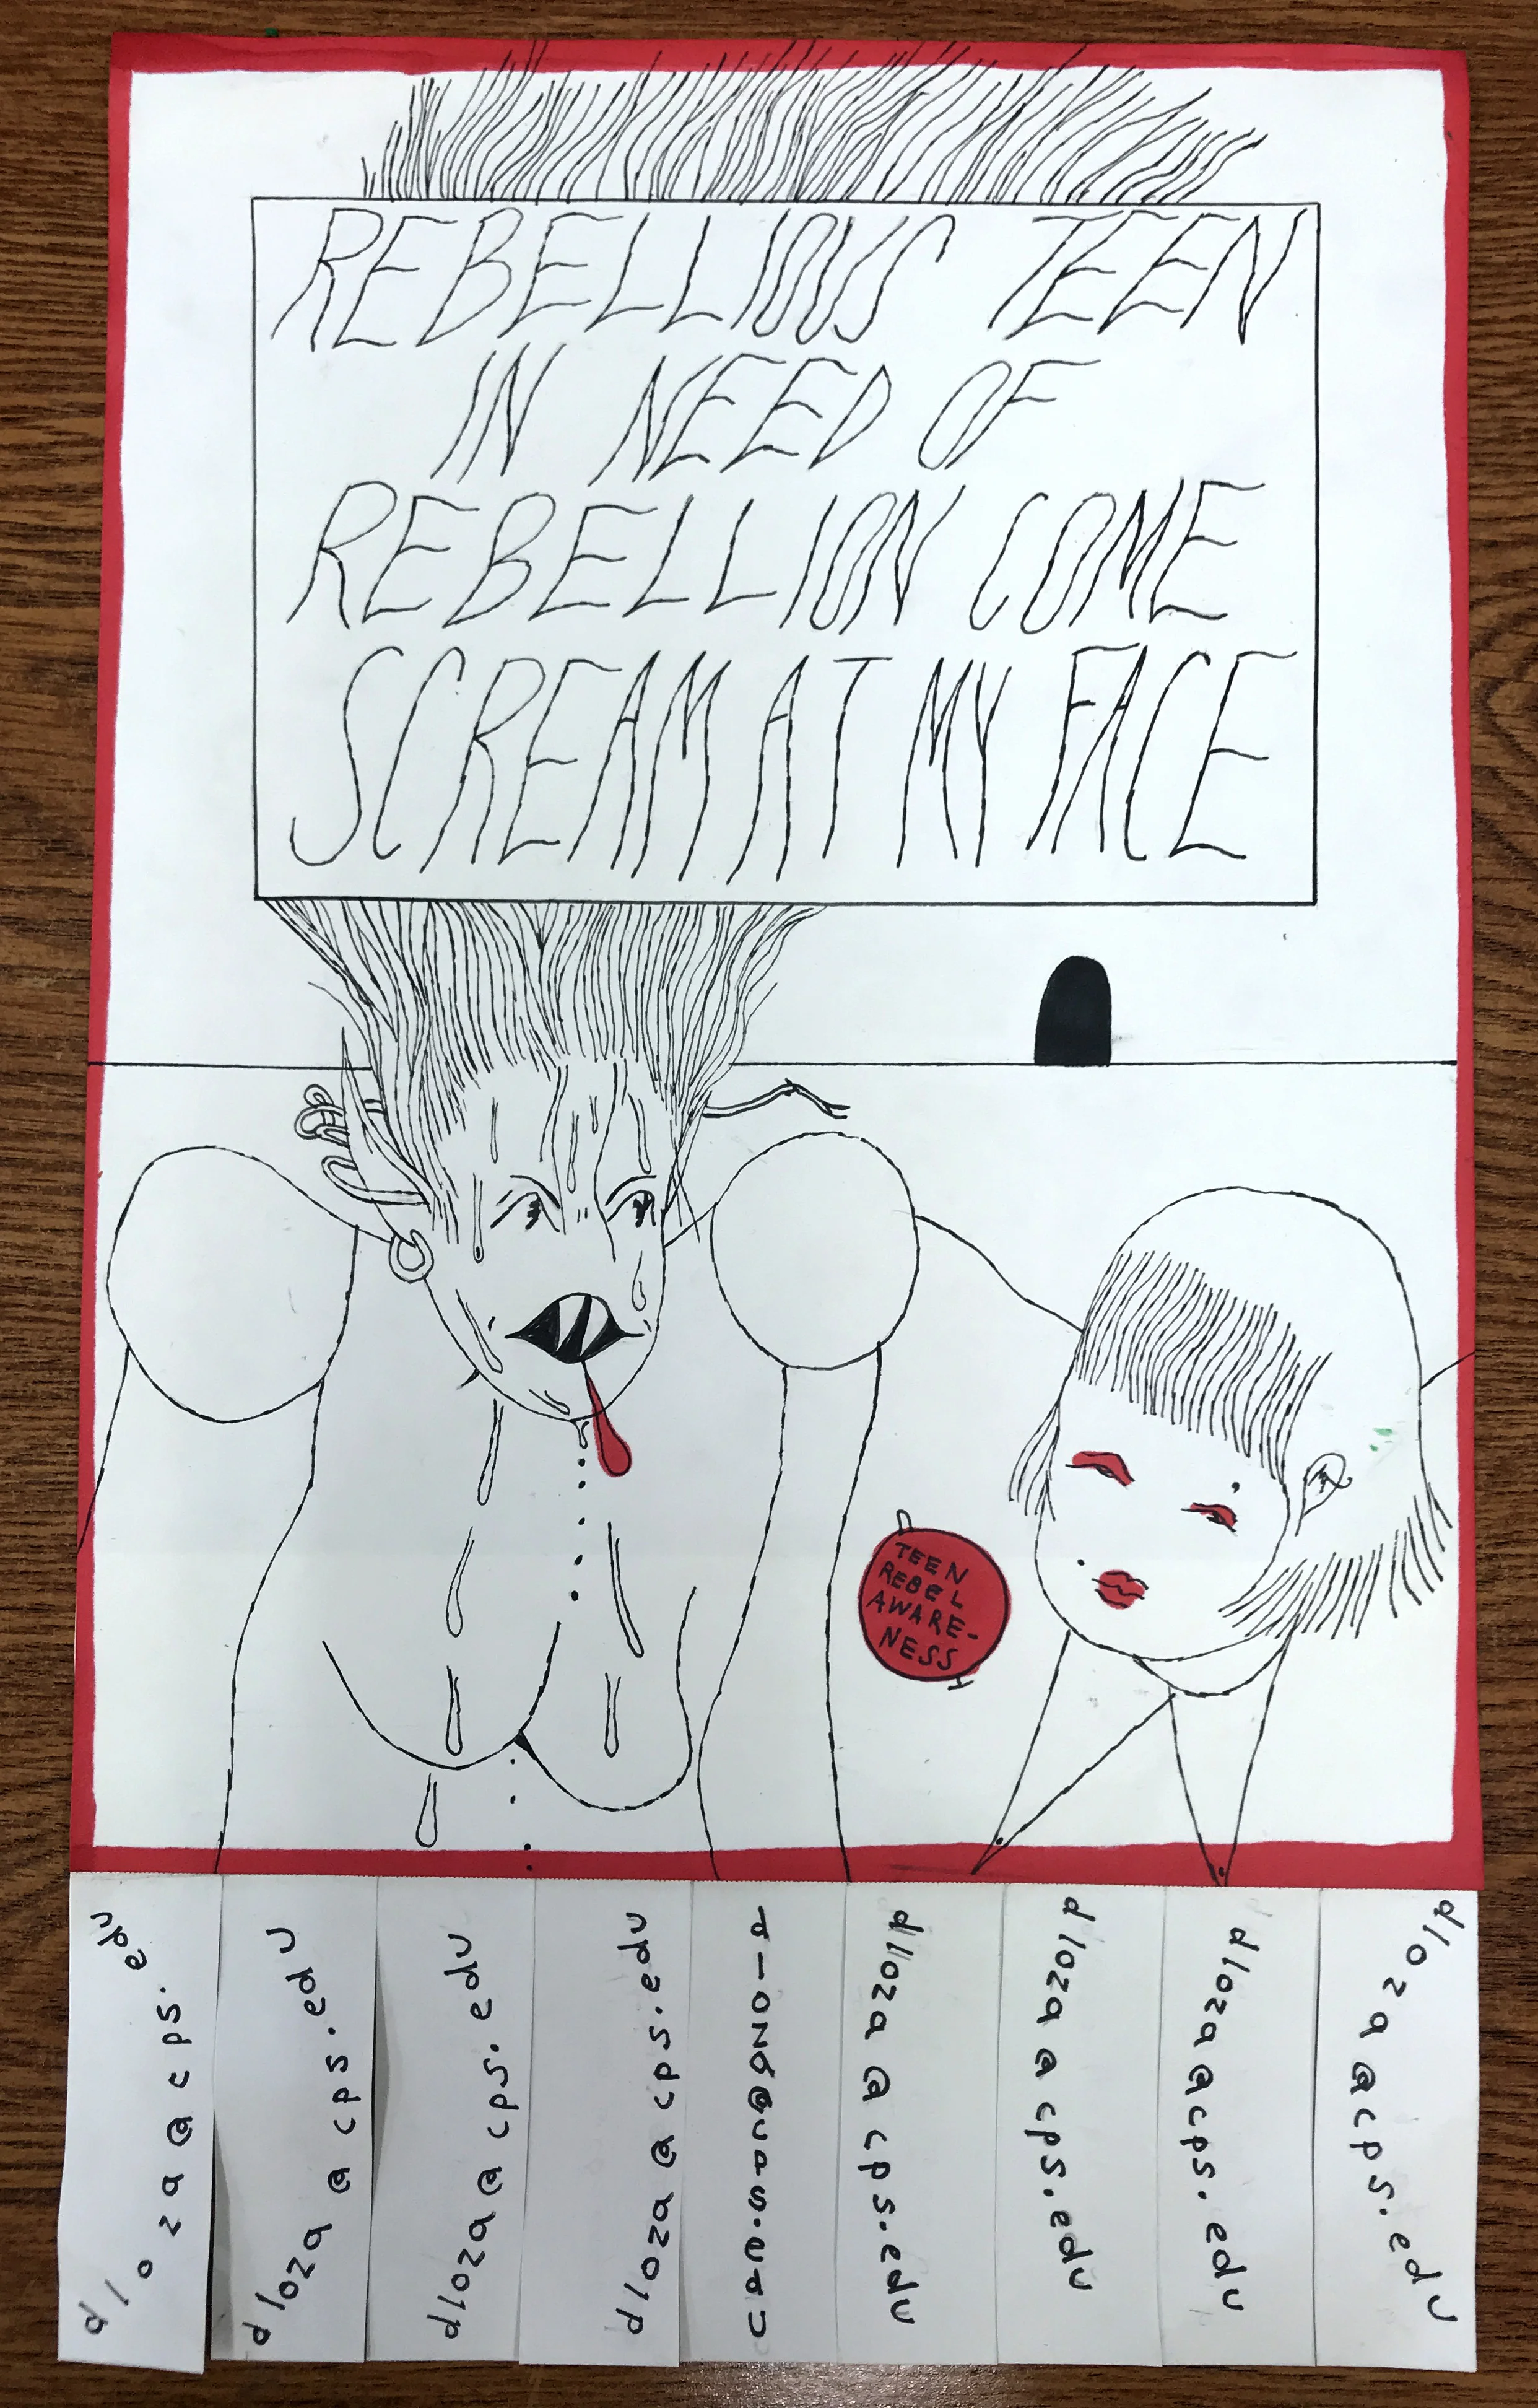 REBELLIOUS TEEN
IN NEED OF
REBELLION COME
SCREAM AT MY FACE
TEEN
REBEL
AWARE-
NESS
dloza@cps.edu
dloza@cps.edu
dloza@cps.edu
dloza@cps.edu
dloza@cps.edu
dloza@cps.edu
dloza@cps.edu
dloza@cps.edu
dloza@cps.edu